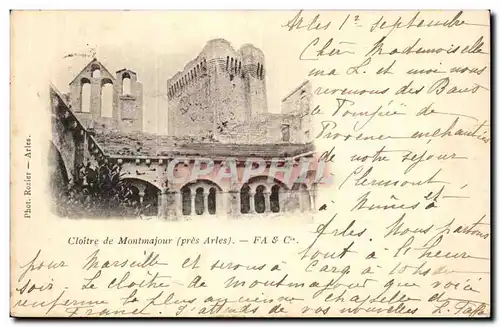 Arles 1er Septembre
Cher Mademoiselle
ma L. et moi nous
revenons des Baux
le Pompée de
Provence enchantées
de notre séjour
Clermont, à
Nimes à
Arles. Nous partons
tout à l'heure
pour Marseille et serons à
soir. Le cloître de Montmajour que voici
renferme la plus ancienne chapelle de
France. J'attends de vos nouvelles
CPARAMA
Phot. Rozier - Arles.
Cloître de Montmajour (près Arles). — FA & Cie.